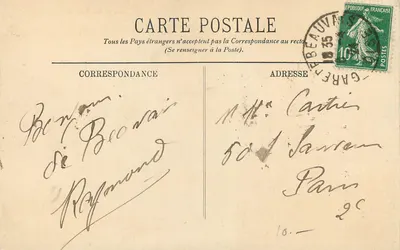 CARTE POSTALE
Tous les Pays étrangers n'acceptent pas la Correspondance au recto
(Se renseigner à la Poste).
CORRESPONDANCE
ADRESSE
GARE DE BEAUVAIS
18 35
10
Bonjour
de Beauvais
Raymond
Cartier
50
Paris
2e
10.—